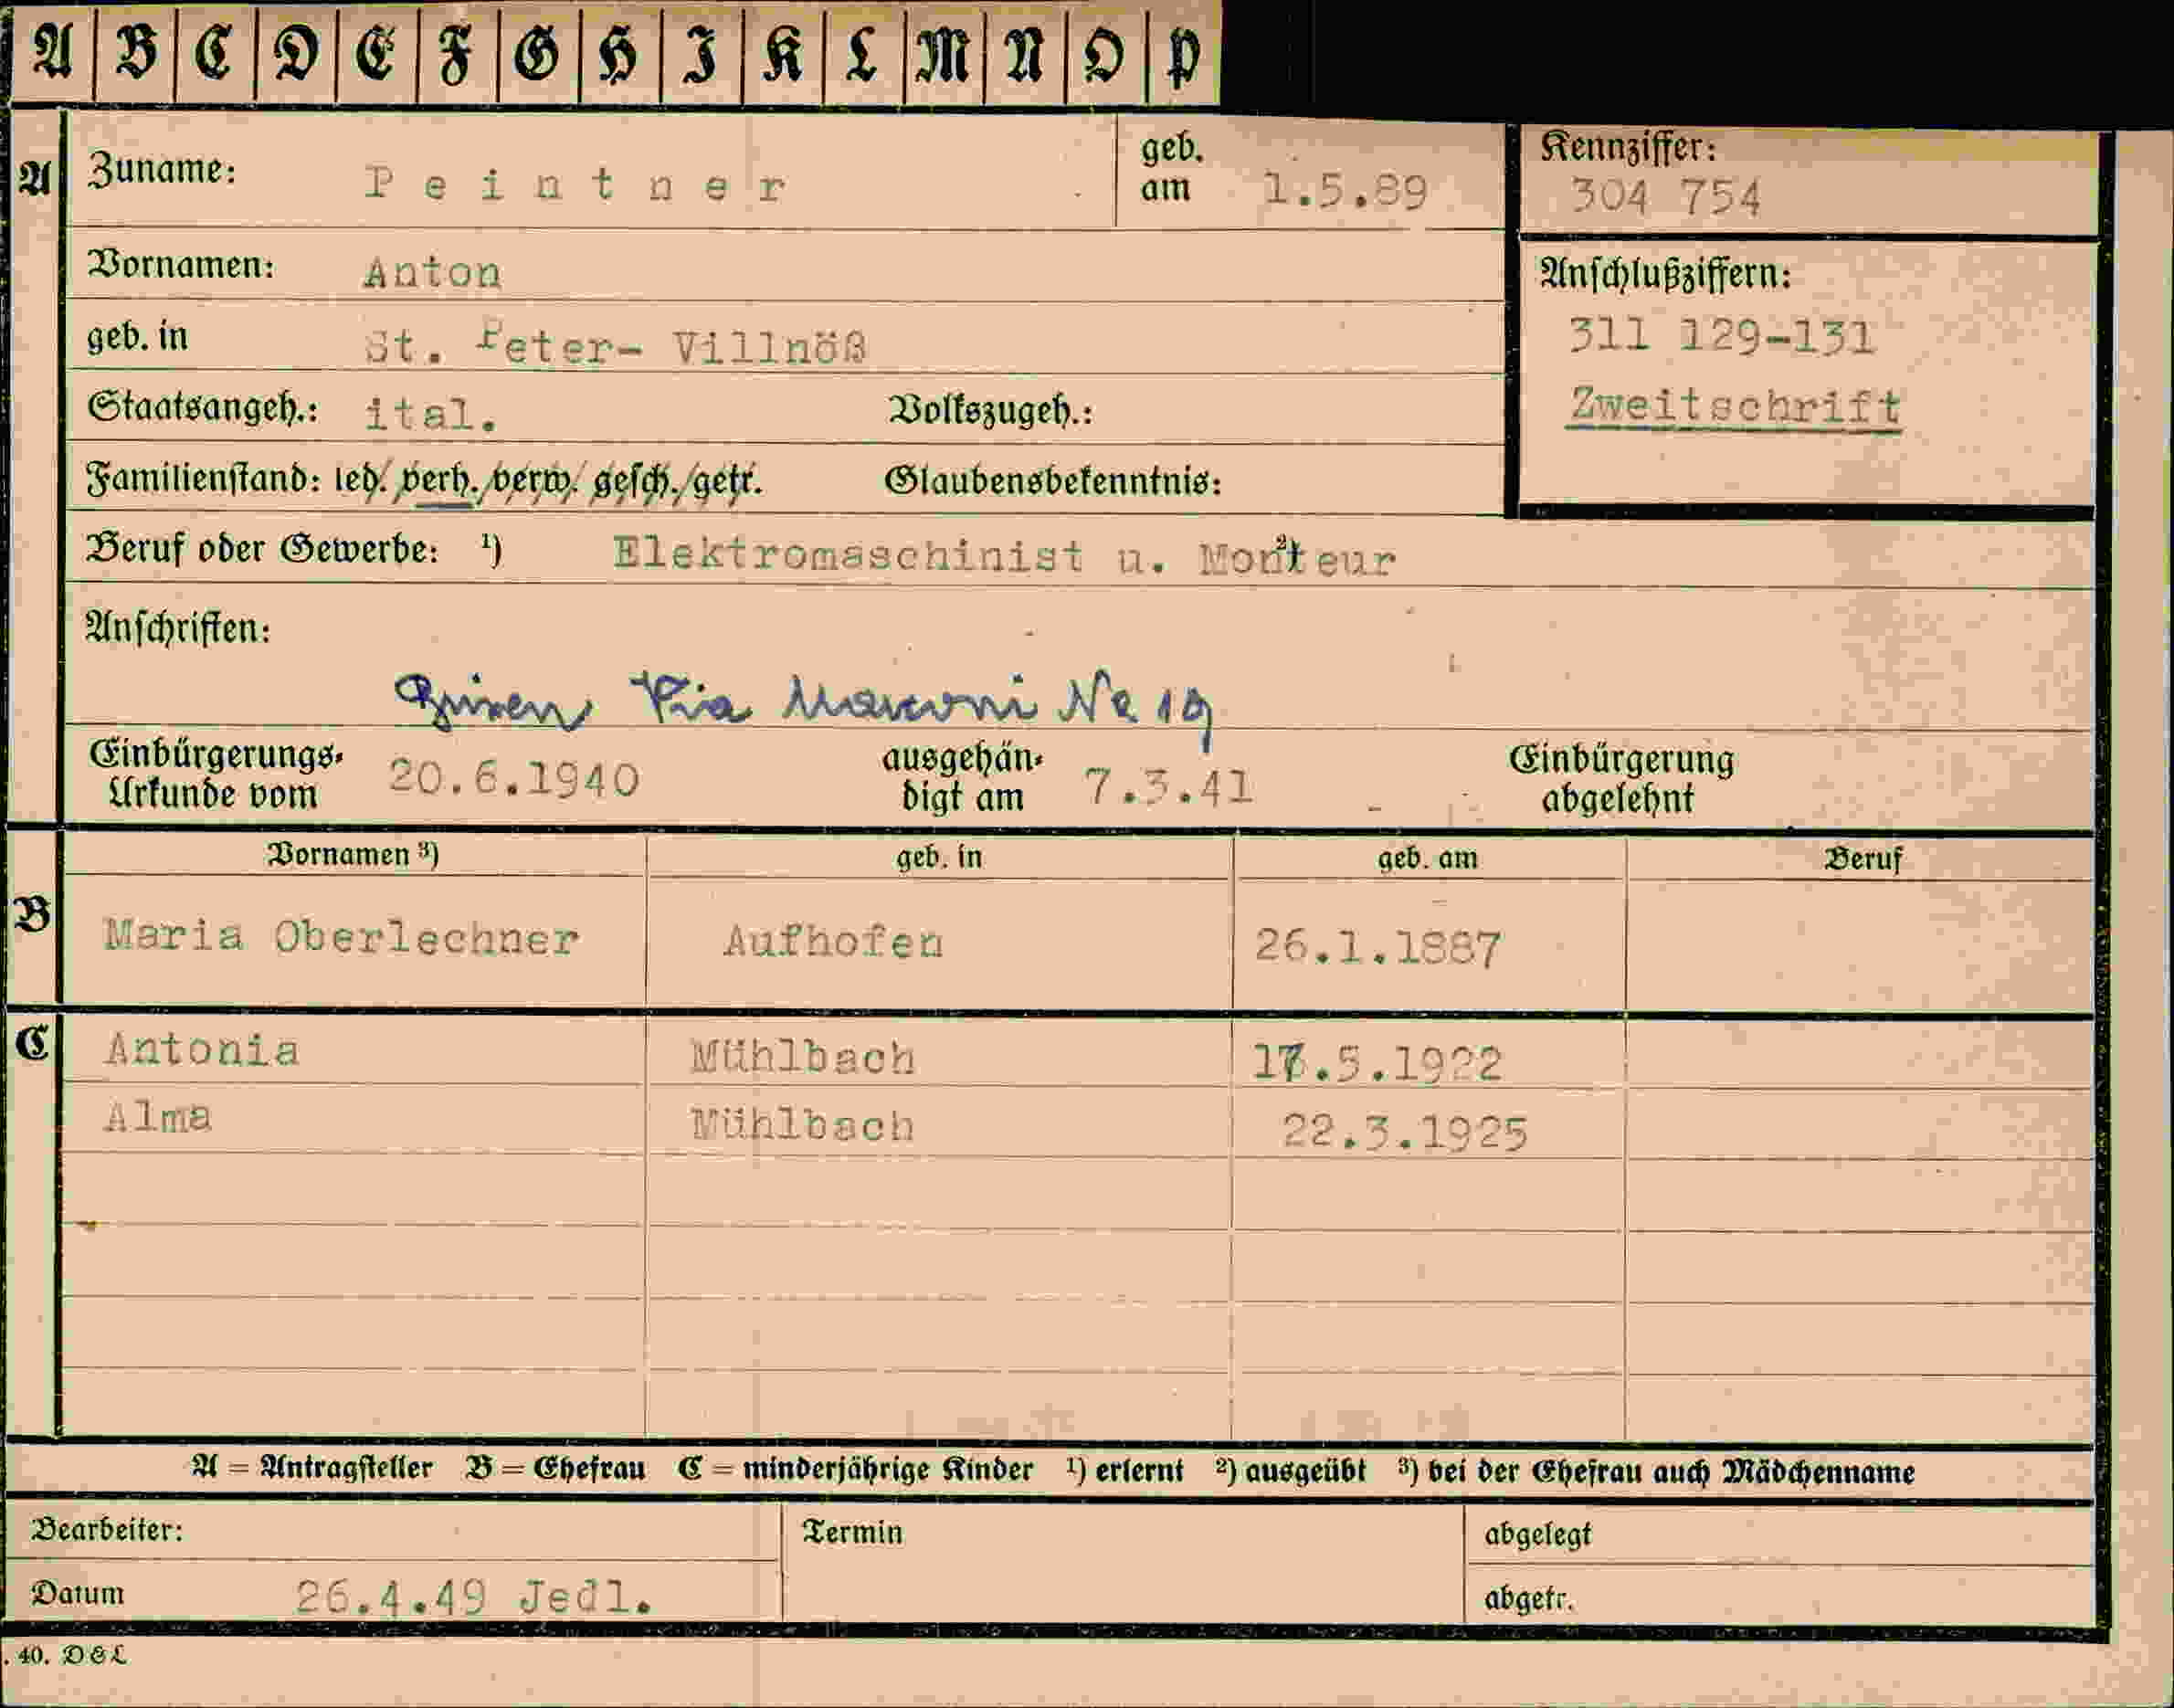 A B C D E F G H I K L M N O P
A Zuname: Peintner geb. am 1.5.89 Kennziffer: 304 754
Vornamen: Anton Anschlußziffern:
geb. in St. Peter- Villnöß 311 129-131
Staatsangeh.: ital. Volkszugeh.: Zweitschrift
Familienstand: led./verh./verw./gesch./getr. Glaubensbekenntnis:
Beruf oder Gewerbe: ¹) Elektromaschinist u. Monteur ²)
Anschriften:
Brixen Via Marconi No 19
Einbürgerungs-Urkunde vom 20.6.1940 ausgehändigt am 7.3.41 Einbürgerung abgelehnt
Vornamen ³) geb. in geb. am Beruf
B Maria Oberlechner Aufhofen 26.1.1887
C Antonia Mühlbach 17.5.1922
Alma Mühlbach 22.3.1925
A = Antragsteller B = Ehefrau C = minderjährige Kinder ¹) erlernt ²) ausgeübt ³) bei der Ehefrau auch Mädchenname
Bearbeiter: Termin abgelegt
Datum 26.4.49 Jedl. abgetr.
. 40. D&L